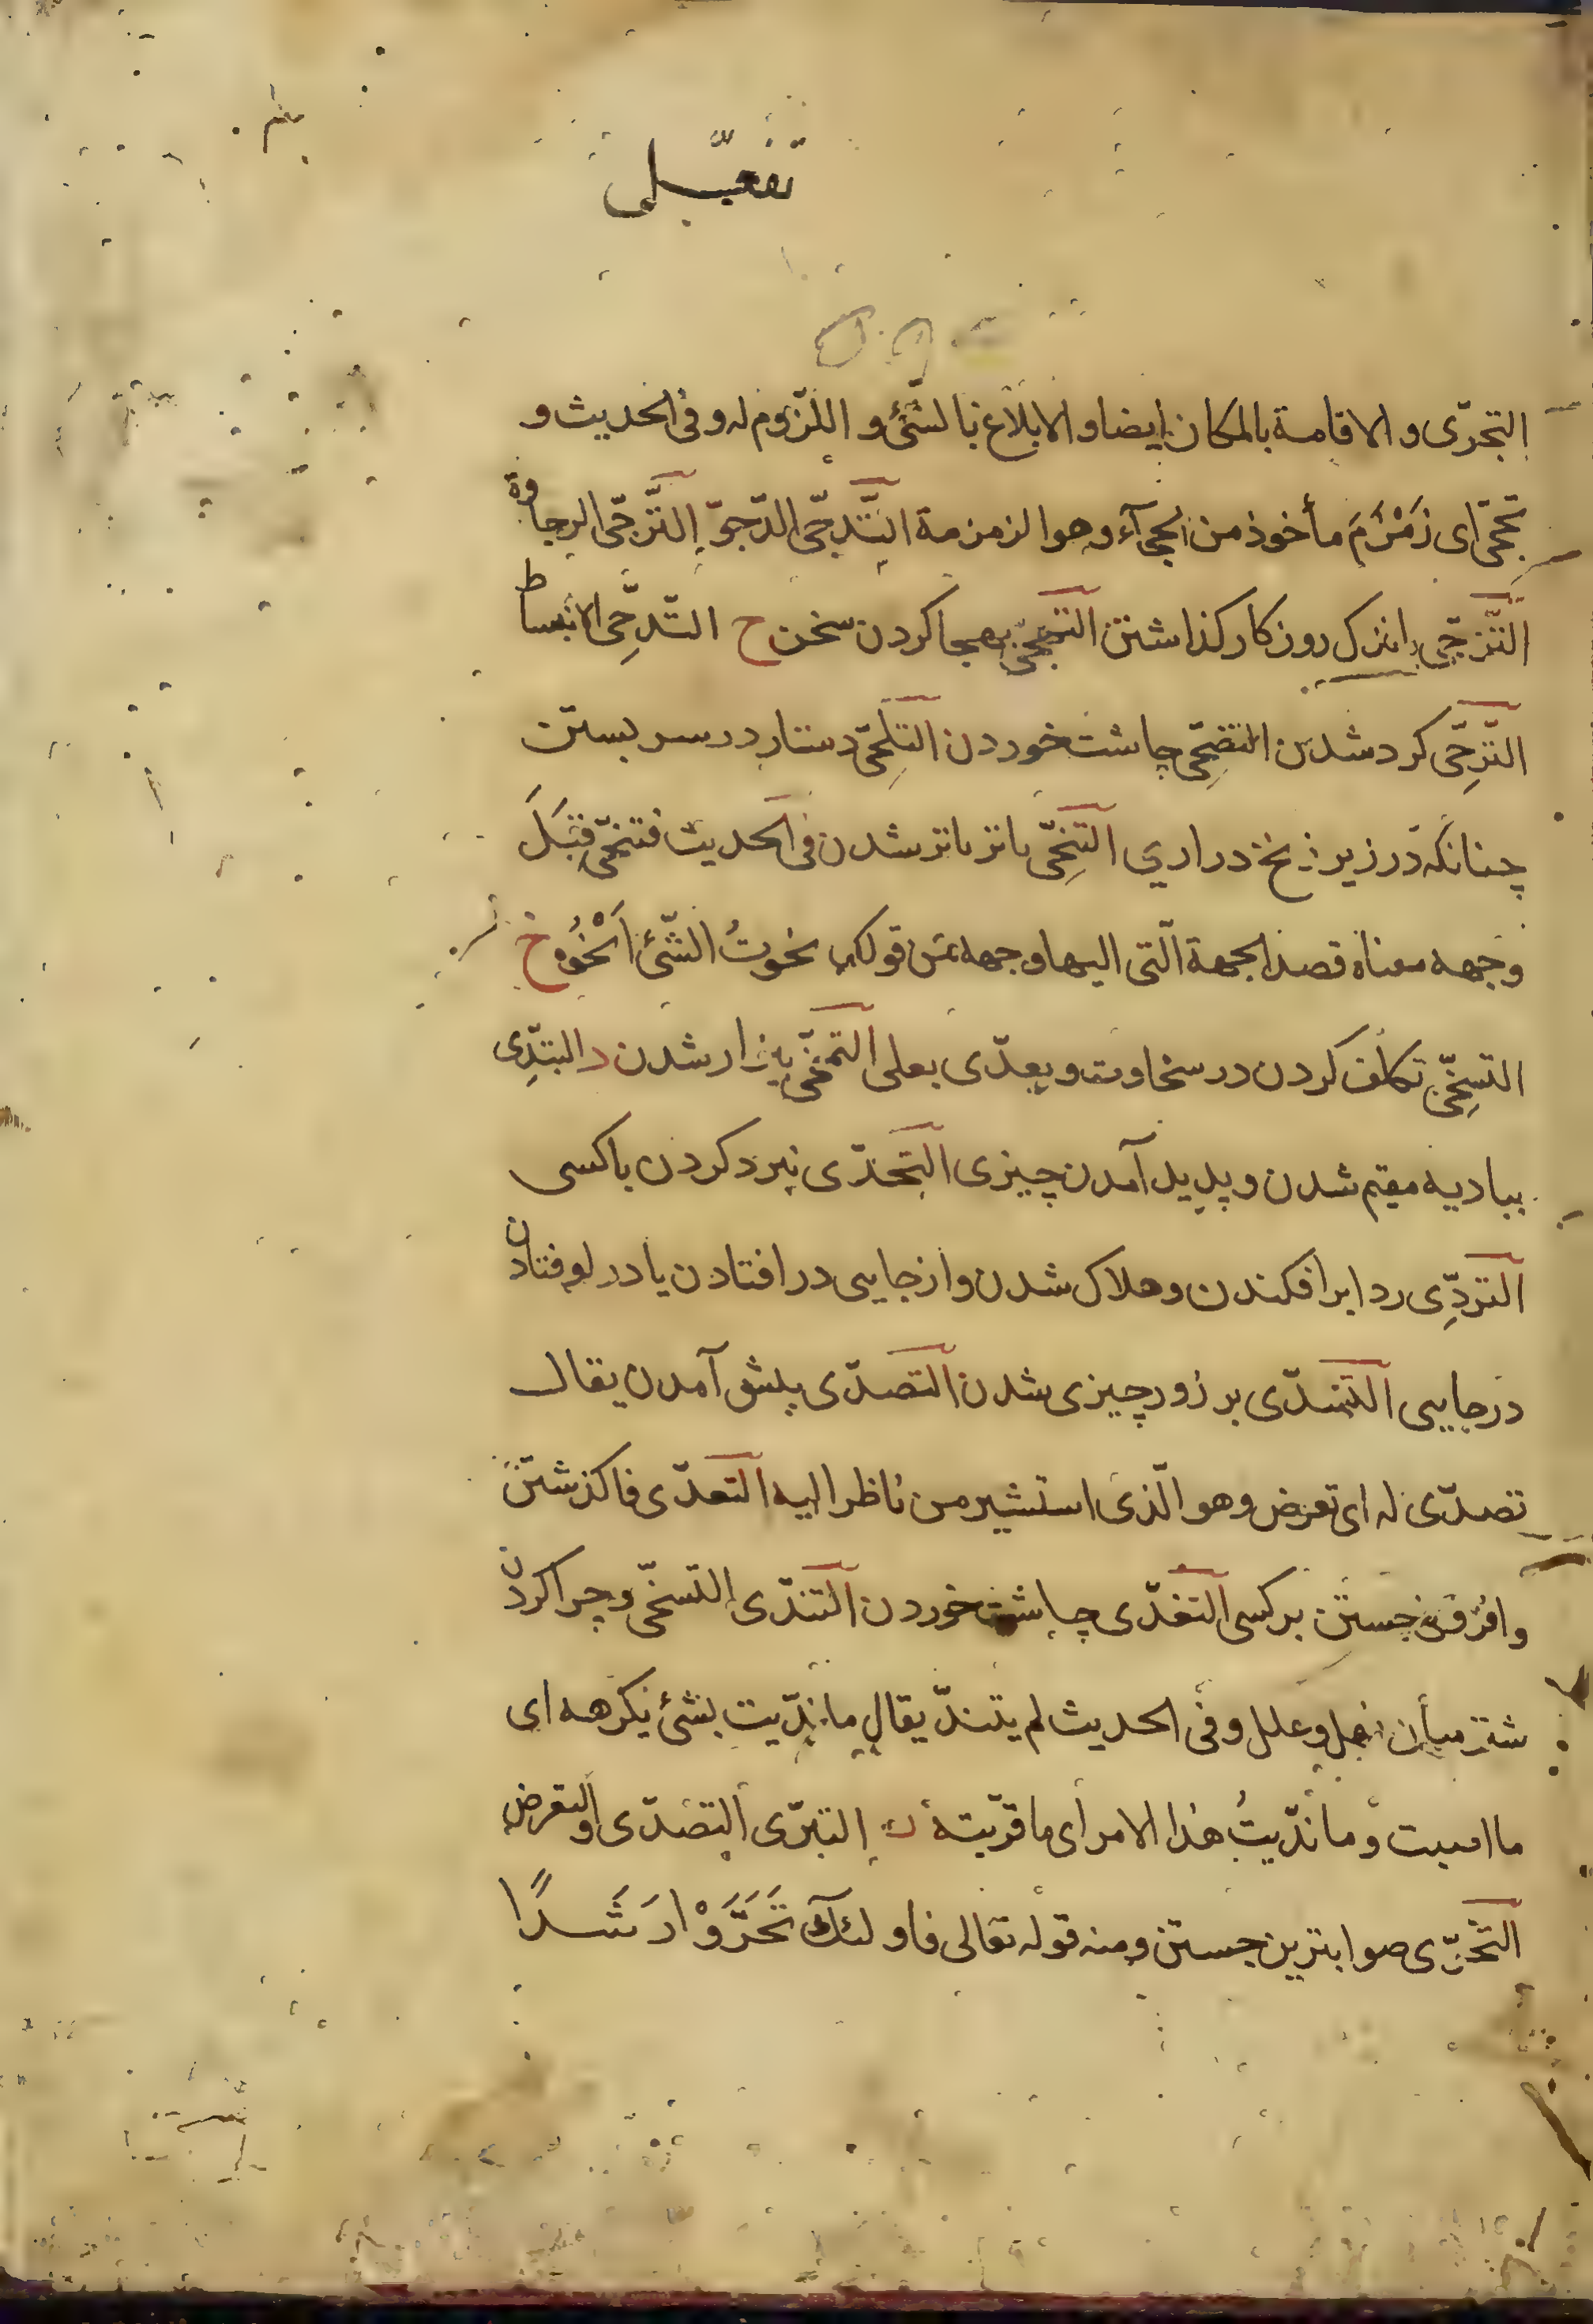 تفعّل
التجرّى و الاقامة بالمكان ايضا و الابلاغ بالشئ و اللزوم له و فى الحديث و
تحجّى اى زَمْزَمَ مأخوذ من الحجآء و هو الزمزمة التَّدجّى الدّجوّ التَّرجّى الرجاوة
التَّزجّى باندك روزكار كذاشتن التهجّى بهجا كردن سخن ح التّدحِّى الانبساط
التّرحِّى كرد شدن التضحِّى چاشت خوردن التلحِّى دستار در سر بستن
چنانكه در زير زنخ در اري التنحِّى باز باز شدن فى الحديث فتنحّى فتبَلَ
وجهه معناه قصد الجهة الّتى اليها وجهه من قولك نحوتُ الشّئ اَنْحُوه خ
التسخِّى تكلف كردن در سخاوت و يعدّى بعلى التمخّى بيزار شدن د التبدِّى
بباديه مقيم شدن و پديد آمدن چيزى التحدّى نبرد كردن با كسى
التردِّى ردا بر افكندن و هلاك شدن و از جايى در افتادن يا در لو فتادن
در جايى التسدّى بر زور چيزى شدن التصدّى پيش آمدن يقال
تصدّى له اى تعرض و هو الّذى استشير من ناظرا اليه التعدّى فا كذشتن
و افزونى جستن بر كسى التغدّى چاشت خوردن التندّى التسخّى و چرا كردن
شتر ميأن نهل و علل و فى الحديث لم يتندّ يقال ما نديت بشئ نكرهه اى
ما اصبت و ما نديتُ هذا الامر اى ما قربته ر التبرّى التصدّى و التعرض
التحرّى صوابترين جستن و منه قوله تعالى فاولئك تَحَرَّوْا رَشَدًا